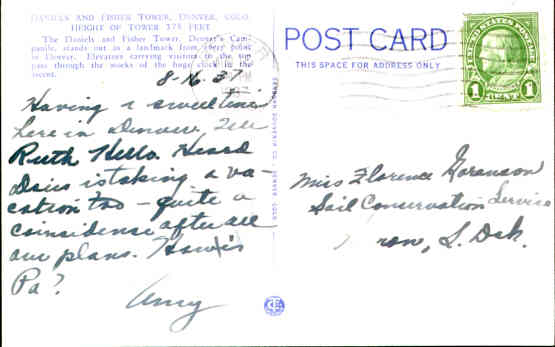 DANIELS AND FISHER TOWER, DENVER, COLO.
HEIGHT OF TOWER 375 FEET
The Daniels and Fisher Tower, Denver's Cam-
panile, stands out in a landmark from every point
in Denver. Elevators carrying visitors to the top
pass through the works of the huge clock in the
ascent.
8-16-37
Having a sweet time
here in Denver. Tell
Ruth Hello. Heard
Dais is taking a va-
cation too - quite a
coinsidense after all
our plans. How is
Pa?
Amy
POST CARD
THIS SPACE FOR ADDRESS ONLY
UNITED STATES POSTAGE
1 CENT 1
Miss Florence Goranson
Soil Conservation Service
ron, S. Dak.